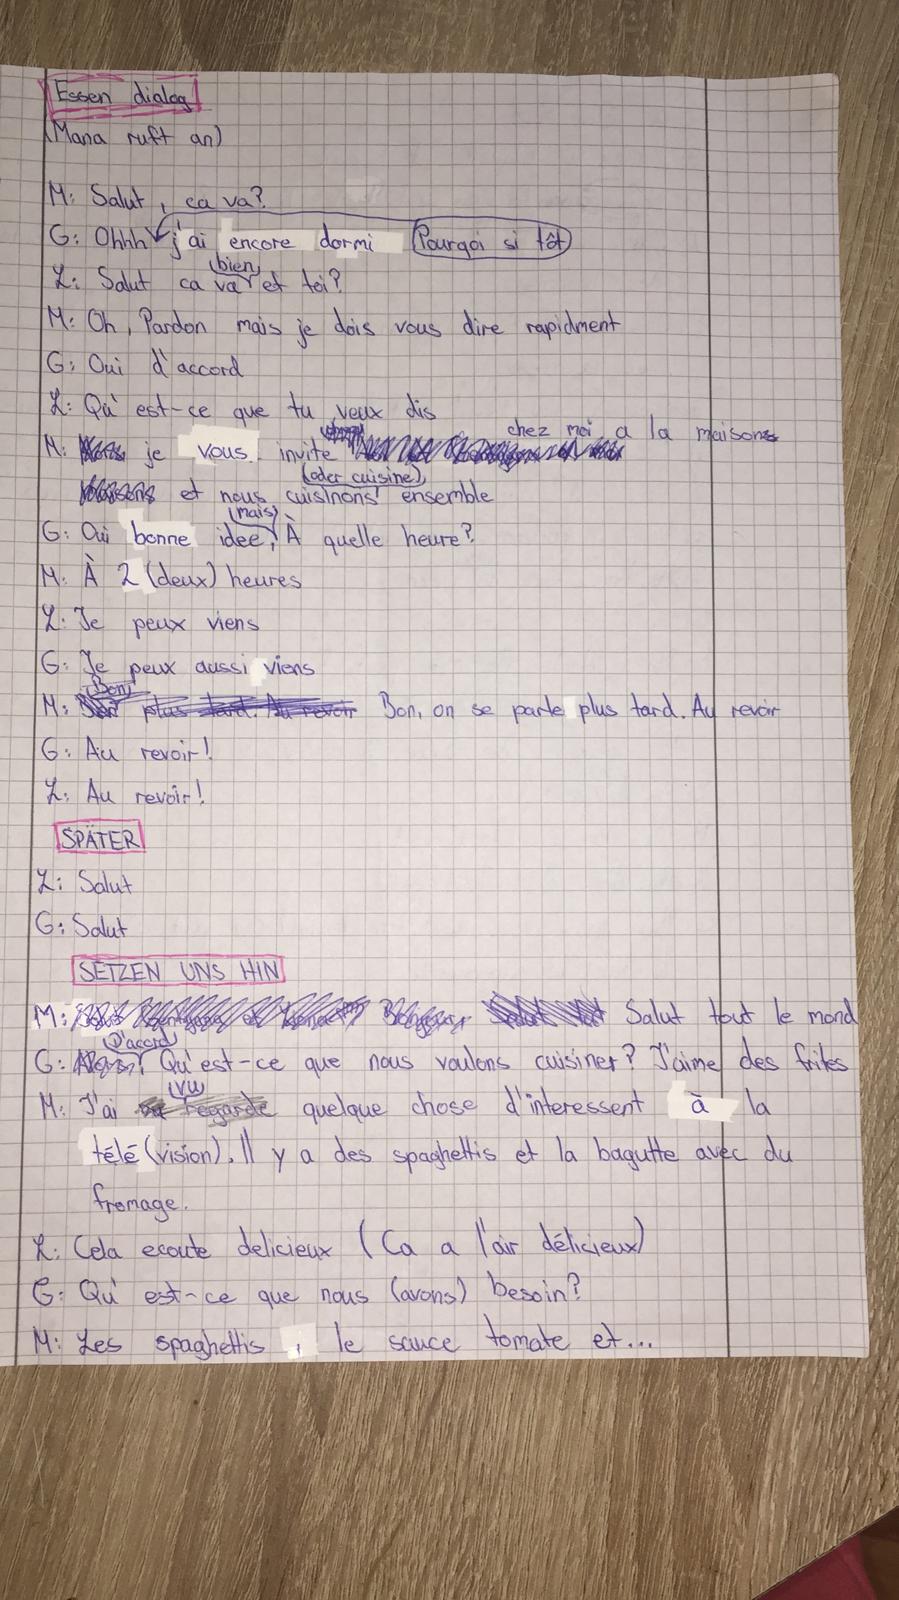 Essen dialog
(Mana ruft an)
M: Salut, ca va?
G: Ohhh j'ai encore dormi Pourqoi si tôt
L: Salut ca va (bien) et toi?
M: Oh, Pardon mais je dois vous dire rapidment
G: Oui d'accord
L: Qu'est-ce que tu veux dis
M: je vous invite chez moi a la maison
(oder cuisine)
et nous cuisinons ensemble
(mais)
G: Oui bonne idee, À quelle heure?
M: À 2 (deux) heures
L: Je peux viens
G: Je peux aussi viens
(Bon)
M: plus tard. Au revoir Bon, on se parle plus tard. Au revoir
G: Au revoir!
L: Au revoir!
SPÄTER
L: Salut
G: Salut
SETZEN UNS HIN
M: Salut tout le mond
(D'accord)
G: Qu'est-ce que nous voulons cuisiner? J'aime des frites
(vu)
M: J'ai regarde quelque chose d'interessent à la
télé(vision). Il y a des spaghettis et la bagutte avec du
fromage.
L: Cela ecoute delicieux (Ca a l'air délicieux)
G: Qu'est-ce que nous (avons) besoin?
M: Les spaghettis, le sauce tomate et...